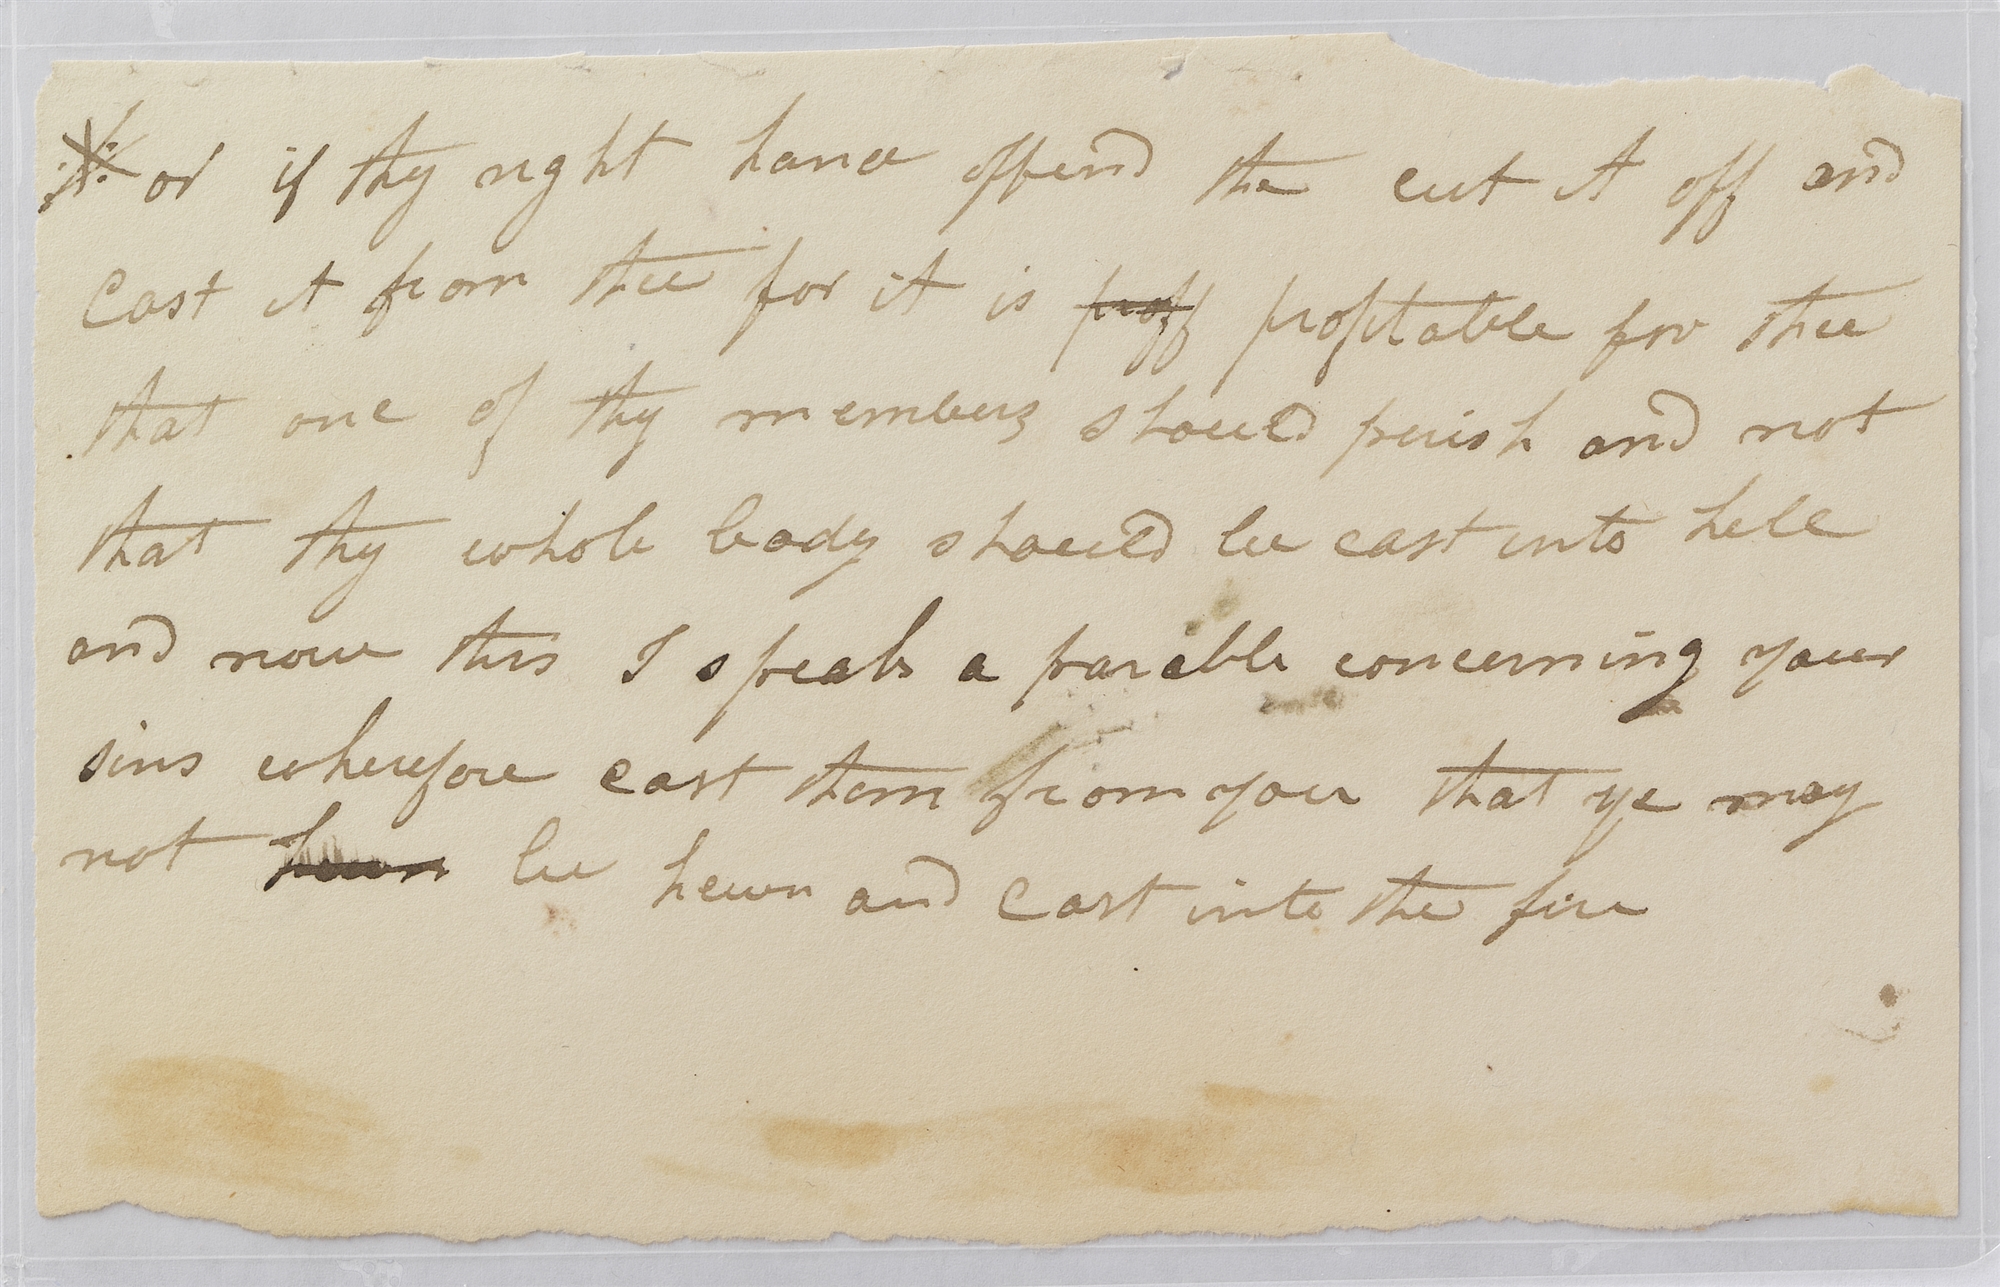 ※ or if thy right hand offend the cut it off and
cast it from thee for it is proff profitable for thee
that one of thy members should perish and not
that thy whole body should be cast into hell
and now this I speak a parable concerning your
sins wherefore cast them from you that ye may
not hewn be hewn and cast into the fire